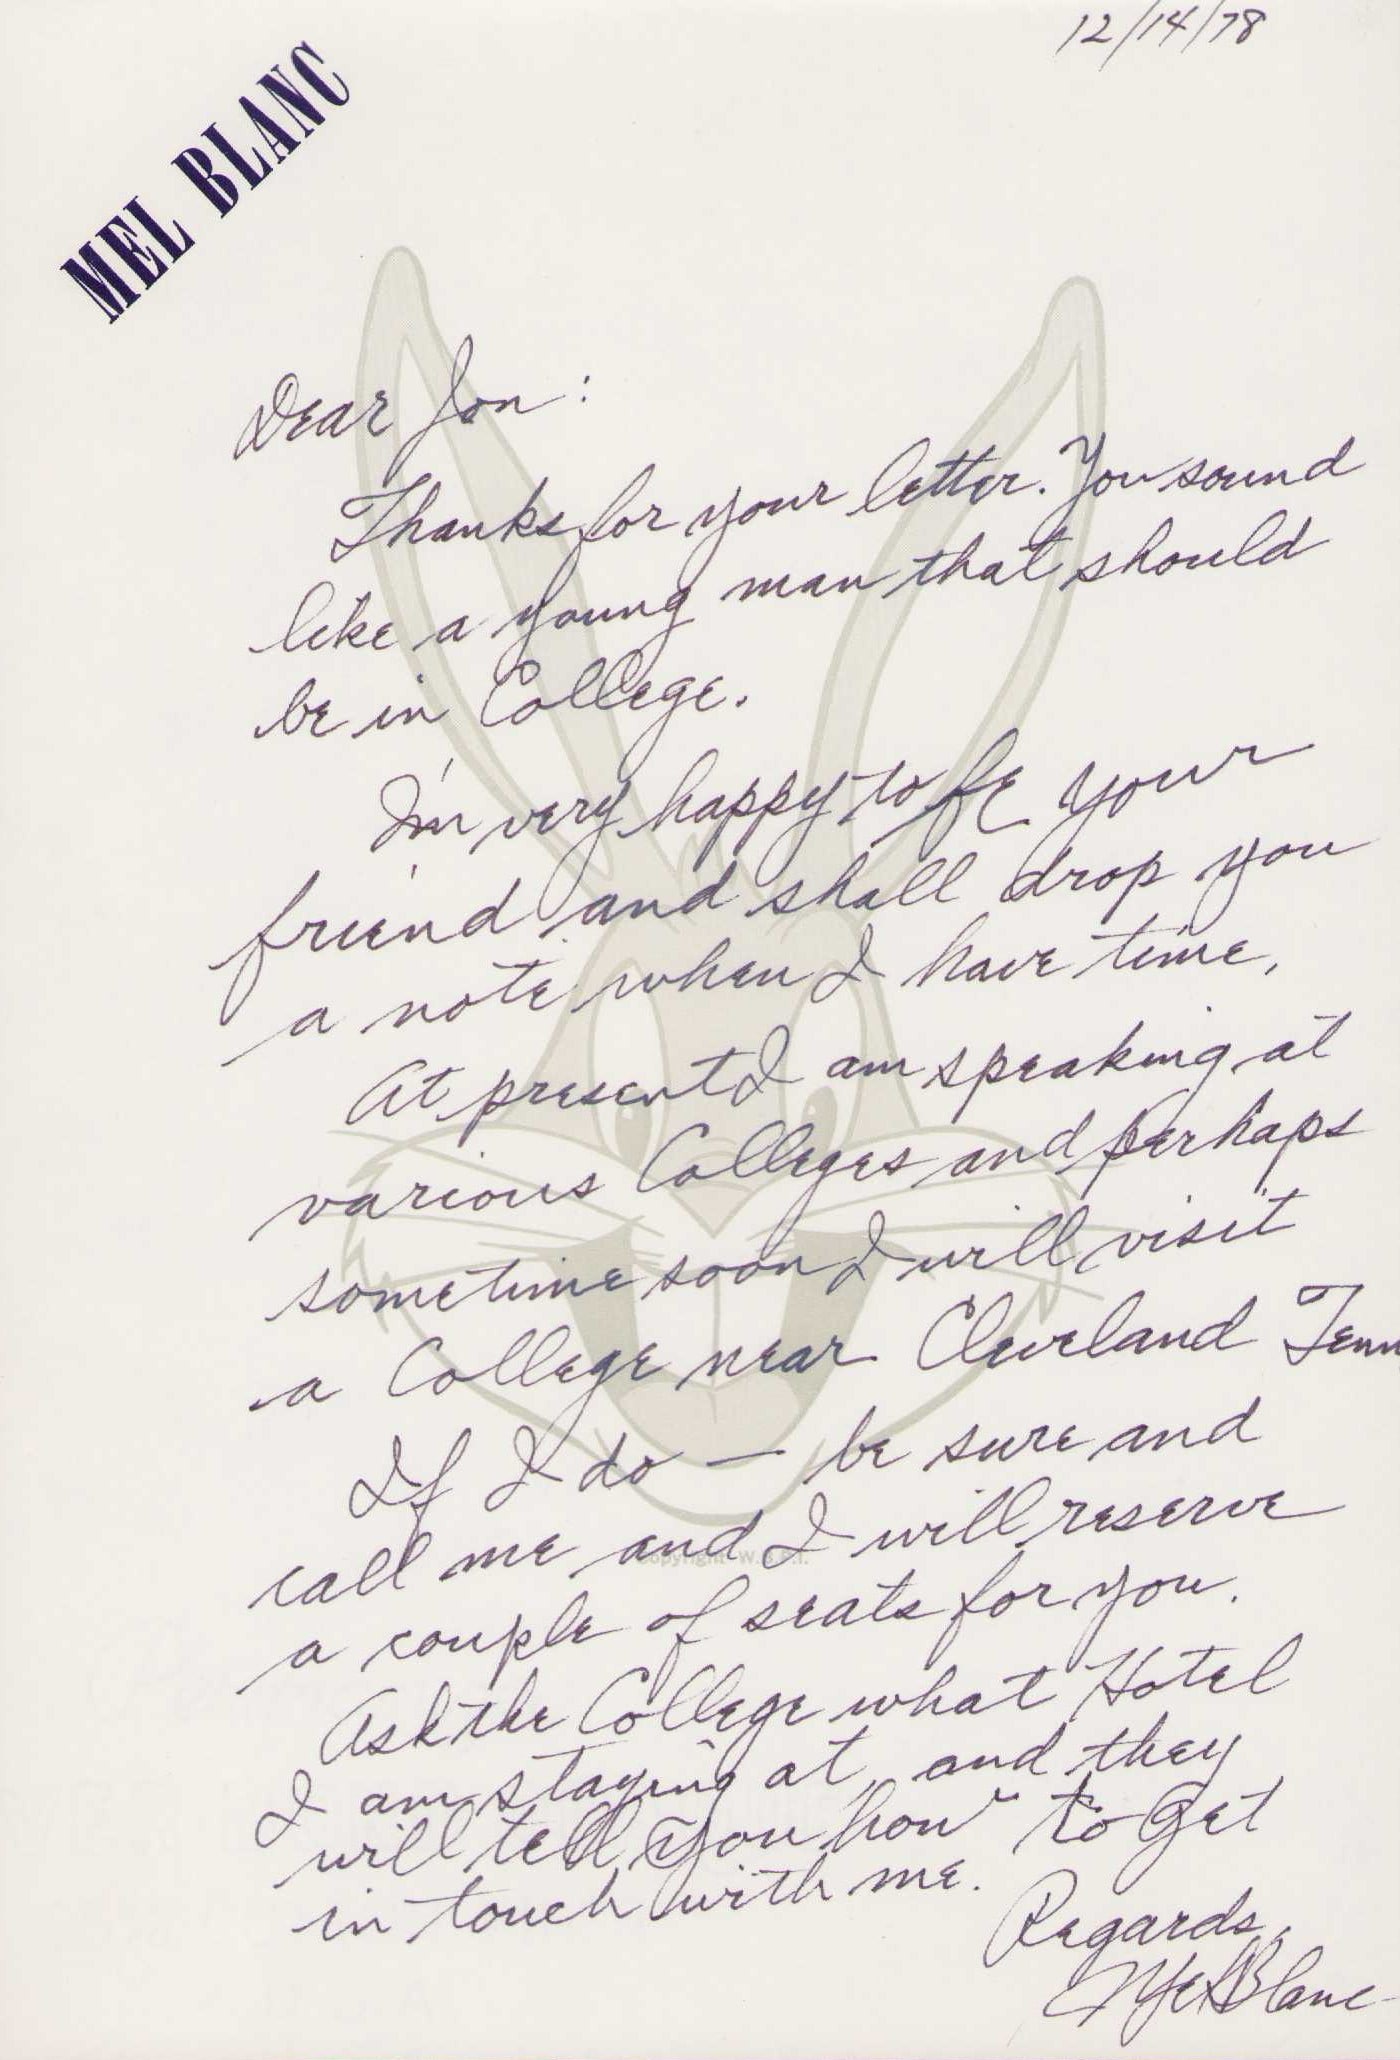 12/14/78
MEL BLANC
Dear Jon:
Thanks for your letter. You sound
like a young man that should
be in College.
I'm very happy to be your
friend and shall drop you
a note when I have time,
At present I am speaking at
various Colleges and perhaps
sometime soon I will visit
a College near Cleveland Tenn
If I do — be sure and
call me and I will reserve
a couple of seats for you.
Copyright W.B.I.
Ask the College what Hotel
I am staying at, and they
will tell you how to get
in touch with me.
Regards,
Mel Blanc